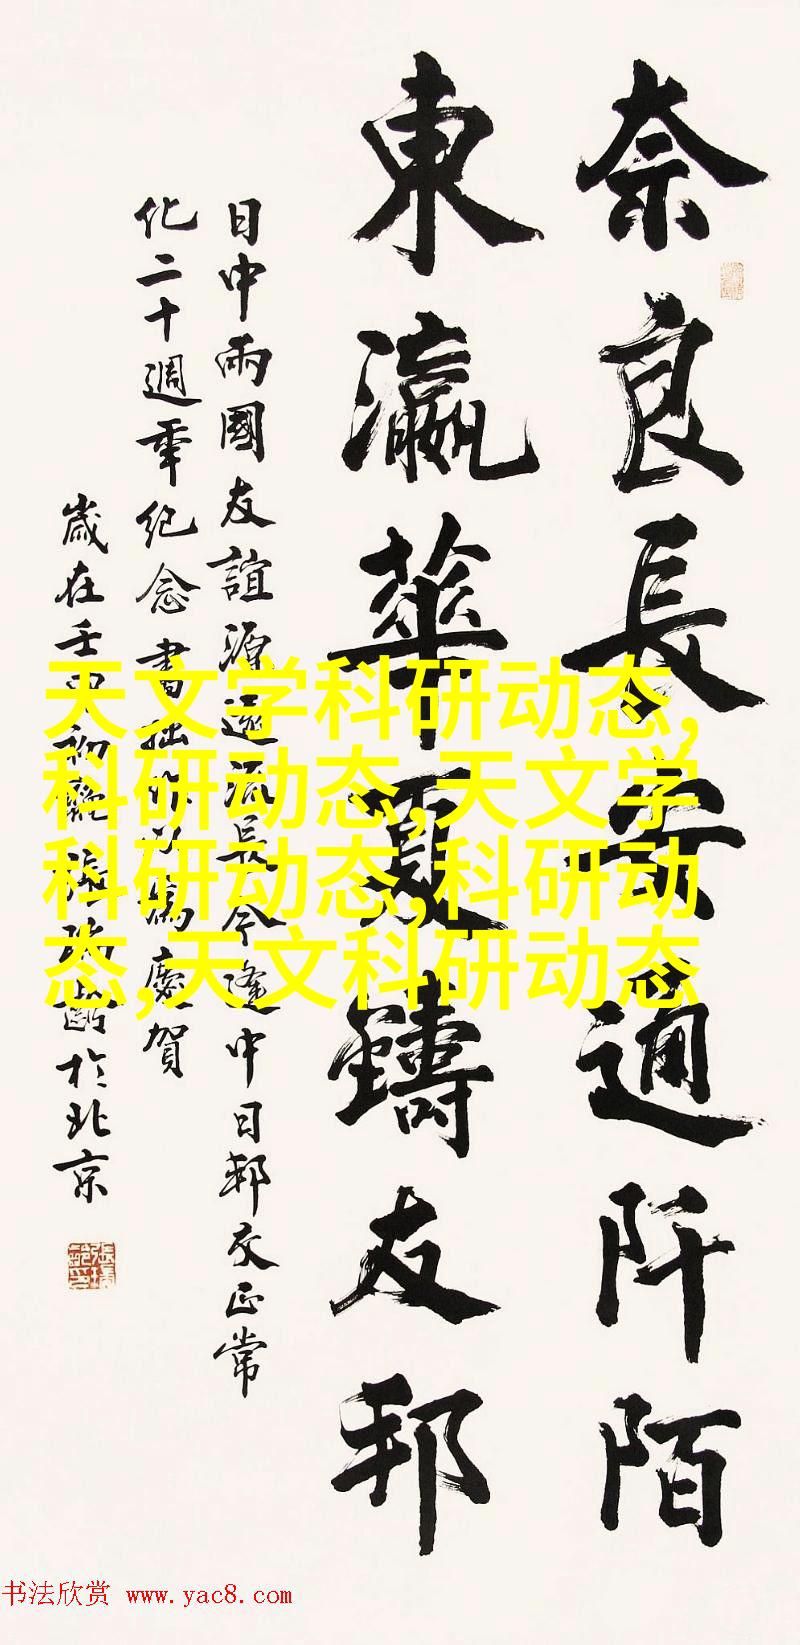 奈良長安通阡陌
東瀛華夏鑄友邦
日中兩國友誼源遠流長今逢中日邦交正常
化二十週年紀念書拙作以為慶賀
歲在壬申初龝張瑞齡於北京
天文学科研动态,
科研动态,天文学
科研动态,科研动
态,天文科研动态
书法欣赏 www.yac8.com